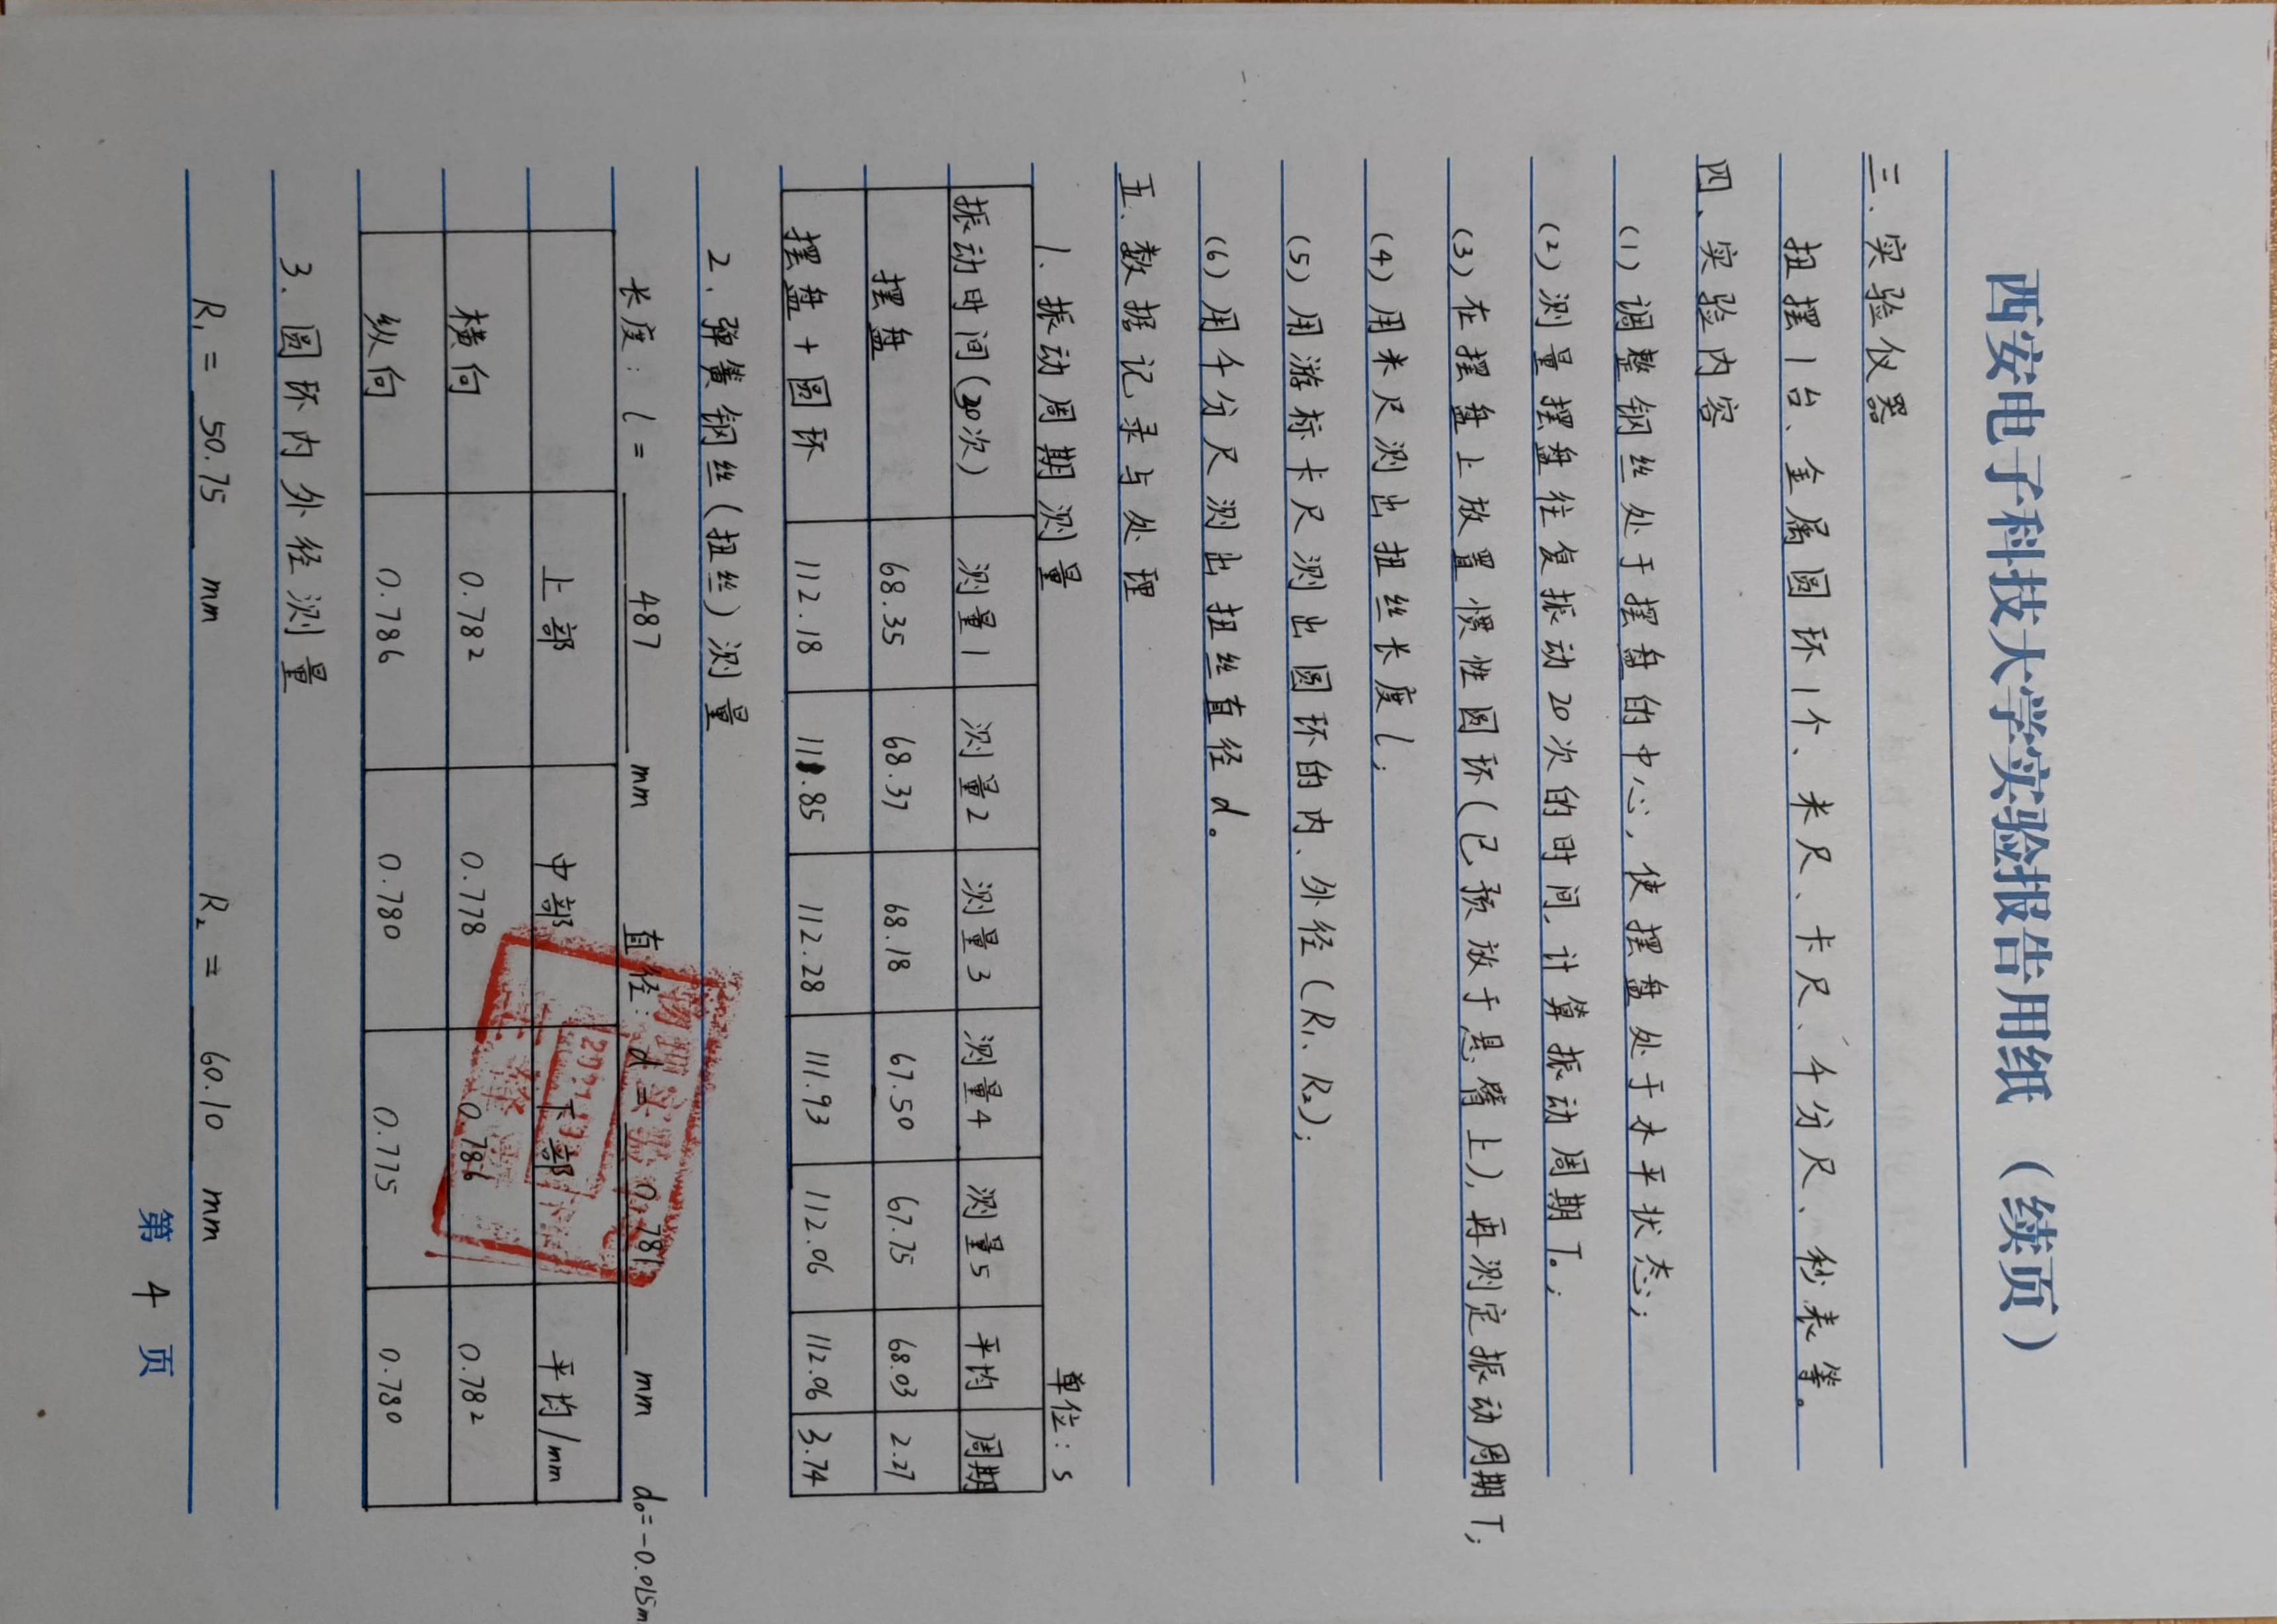 西安电子科技大学实验报告用纸（续页）
三、实验仪器
扭摆1台、金属圆环1个、米尺、卡尺、千分尺、秒表等。
四、实验内容
(1) 调整钢丝处于摆盘的中心，使摆盘处于水平状态；
(2) 测量摆盘往复振动20次的时间，计算振动周期T₀；
(3) 在摆盘上放置惯性圆环(已预放于悬臂上)，再测定振动周期T；
(4) 用米尺测出扭丝长度l；
(5) 用游标卡尺测出圆环的内、外径(R₁、R₂)；
(6) 用千分尺测出扭丝直径d。
五、数据记录与处理
1. 振动周期测量 单位：s
振动时间(30次) 测量1 测量2 测量3 测量4 测量5 平均 周期
摆盘 68.35 68.37 68.18 67.50 67.75 68.03 2.27
摆盘+圆环 112.18 111.85 112.28 111.93 112.06 112.06 3.74
2. 弹簧钢丝(扭丝)测量
长度：l = 487 mm 直径：d = 0.781 mm d₀=-0.015m
上部 中部 下部 平均/mm
横向 0.782 0.778 0.786 0.782
纵向 0.786 0.780 0.775 0.780
3. 圆环内外径测量
R₁ = 50.75 mm R₂ = 60.10 mm
第 4 页